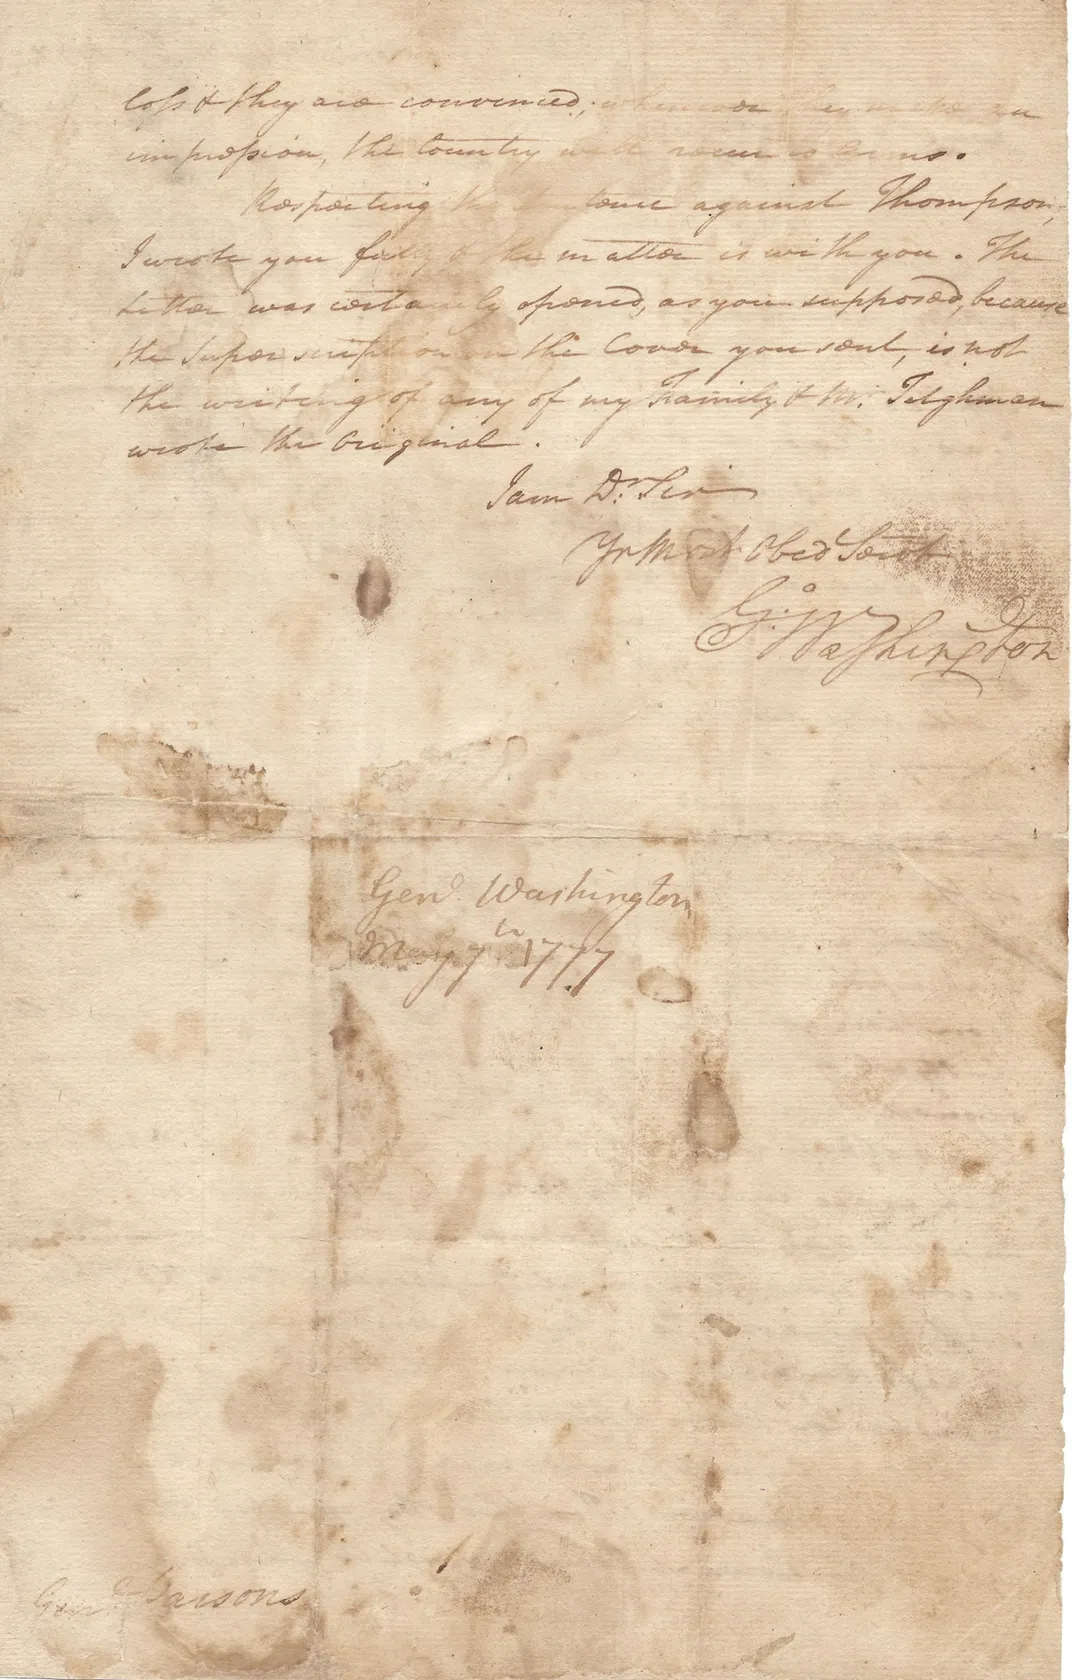 loss & they are convinced, whenever they make an
impression, the Country will resume arms.
Respecting the Sentence against Thompson,
I wrote you fully & the matter is with you. The
Letter was certainly opened, as you supposed, because
the Superscription on the Cover you sent, is not
the writing of any of my Family & Mr. Tilghman
wrote the Original.
I am Dr. Sir
Yr Most Obed Servt
Go: Washington
Genl. Washington
May 7th 1777
Genl Parsons